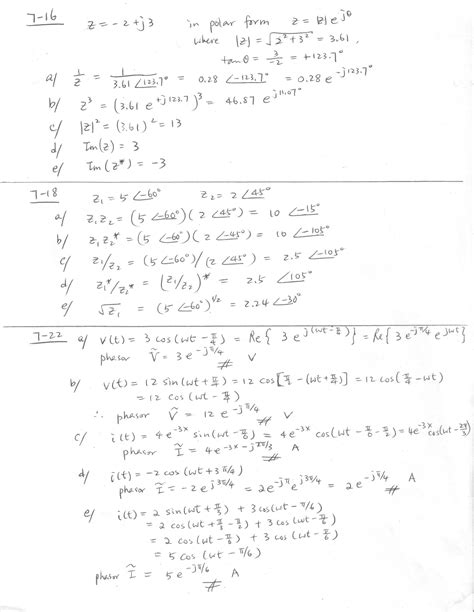 7-16 z = -2 + j3 in polar form z = |z|e^jθ
where |z| = √2²+3² = 3.61,
tan θ = 3/-2 = +123.7°
a/ 1/z = 1/3.61∠123.7° = 0.28 ∠-123.7° = 0.28 e^-j123.7°
b/ z³ = (3.61 e^+j123.7)³ = 46.87 e^j11.07°
c/ |z|² = (3.61)² = 13
d/ Im(z) = 3
e/ Im(z*) = -3
7-18 z₁ = 5∠-60° z₂ = 2∠45°
a/ z₁z₂ = (5∠-60°)(2∠45°) = 10 ∠-15°
b/ z₁z₂* = (5∠-60°)(2∠-45°) = 10 ∠-105°
c/ z₁/z₂ = (5∠-60°)/(2∠45°) = 2.5 ∠-105°
d/ z₁*/z₂* = (z₁/z₂)* = 2.5 ∠105°
e/ √z₁ = (5∠-60°)^1/2 = 2.24∠-30°
7-22 a/ v(t) = 3 cos(ωt - π/4) = Re{ 3 e^j(ωt-π/4) } = Re{ 3 e^-jπ/4 e^jωt }
phasor Ṽ = 3 e^-jπ/4 # V
b/ v(t) = 12 sin(ωt + π/4) = 12 cos[π/2 - (ωt + π/4)] = 12 cos(π/4 - ωt)
= 12 cos(ωt - π/4)
∴ phasor Ṽ = 12 e^-jπ/4 # V
c/ i(t) = 4e^-3x sin(ωt - π/6) = 4e^-3x cos(ωt - π/6 - π/2) = 4e^-3x cos(ωt - 2π/3)
phasor Ĩ = 4e^-3x-j2π/3 # A
d/ i(t) = -2 cos(ωt + 3π/4)
phasor Ĩ = -2 e^j3π/4 = 2e^-jπ e^j3π/4 = 2e^-jπ/4 # A
e/ i(t) = 2 sin(ωt + π/3) + 3 cos(ωt - π/6)
= 2 cos(ωt + π/3 - π/2) + 3 cos(ωt - π/6)
= 2 cos(ωt - π/6) + 3 cos(ωt - π/6)
= 5 cos(ωt - π/6)
phasor Ĩ = 5 e^-jπ/6 # A